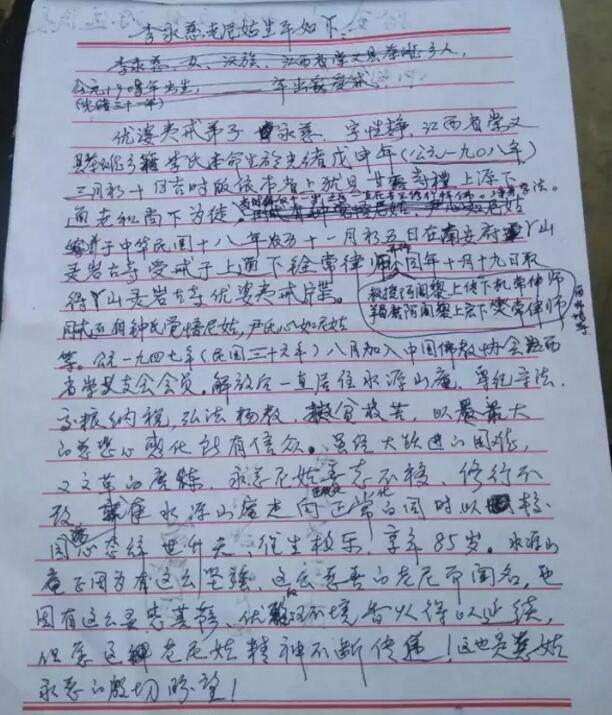 李永慈老尼姑生平如下:
李永慈,女,汉族,江西省崇义县
公元1908年出生, 年出家受戒
(光绪三十一年)
优婆夷戒弟子 永慈,字性静,江西省崇义
县 籍李氏 命生於光绪戊申年(公元一九〇八年)
三月初十 吉时皈依本省上犹县 上源下
通老和尚下为徒。
于中华民国十八年农历十一月初五日在南安府 丫山
灵岩古寺受戒于上通下 全常律师 同年十月十九日取
得丫山灵岩古寺优婆夷戒牒。
教授阿阇黎上传下机常律师
羯磨阿阇黎上宏下 常律师
同戒 有钟氏觉悟尼姑,尹氏心如尼姑
等。公元一九四七年(民国三十六年)八月加入中国佛教协会江西
省崇义支会会员。解放后一直居住水源山庵,遵纪守法,
交粮纳税,弘法扬教,救贫救苦,以最大
的慈悲心感化所有信众。虽经大跃进的困难,
又文革的磨炼,永慈尼姑意志不移,修行不
改,在水源山庵走向正常化的同时以
因 世升天,往生极乐,享年85岁。水源山
庵正因为有这么坚强,这么慈善的老尼而闻名,也
因有这么 ,优 环境 得以延续,
但愿这种老尼姑精神不断传递!这也是慈姑
永慈的殷切盼望!